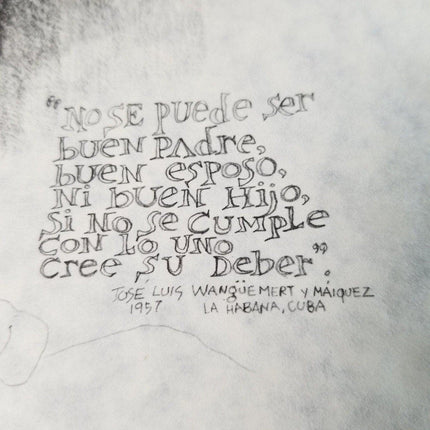 "NO SE puede ser
buen padre,
buen esposo,
Ni buen Hijo,
Si No se Cumple
CON LO UNO
Cree SU Deber".
JOSÉ LUIS WANGÜEMERT Y MÁIQUEZ
1957 LA HABANA, CUBA